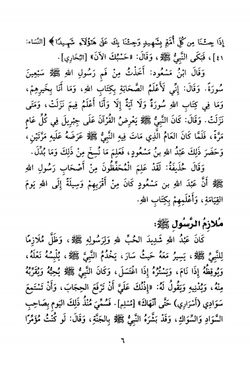 إِذَا جِئْنَا مِن كُلِّ أُمَّةٍ بِشَهِيدٍ وَجِئْنَا بِكَ عَلَىٰ هَٰؤُلَاءِ شَهِيدًا﴾ [النساء:
٤١]، فَبَكَى النَّبِيُّ ﷺ، وَقَالَ: «حَسْبُكَ الآنَ» [البخاري].
وَقَالَ ابْنُ مَسْعُودٍ: أَخَذْتُ مِنْ فَمِ رَسُولِ اللهِ ﷺ سَبْعِينَ
سُورَةً. وَقَالَ: إِنِّي لَأَعْلَمُ الصَّحَابَةِ بِكِتَابِ اللهِ، وَمَا أَنَا بِخَيْرِهِمْ،
وَمَا فِي كِتَابِ اللهِ سُورَةٌ وَلَا آيَةٌ إِلَّا وَأَنَا أَعْلَمُ فِيمَ نَزَلَتْ، وَمَتَى
نَزَلَتْ. وَقَالَ: كَانَ النَّبِيُّ ﷺ يَعْرِضُ الْقُرْآنَ عَلَى جِبْرِيلَ فِي كُلِّ عَامٍ
مَرَّةً، فَلَمَّا كَانَ الْعَامُ الَّذِي مَاتَ فِيهِ النَّبِيُّ ﷺ عَرَضَهُ عَلَيْهِ مَرَّتَيْنِ،
وَحَضَرَ ذَلِكَ عَبْدُ اللهِ بْنُ مَسْعُودٍ، فَعَلِمَ مَا نُسِخَ مِنْ ذَلِكَ وَمَا بُدِّلَ.
وَقَالَ حُذَيْفَةُ: لَقَدْ عَلِمَ الْمَحْفُوظُونَ مِنْ أَصْحَابِ رَسُولِ اللهِ
ﷺ أَنَّ عَبْدَ اللهِ بن مَسْعُودٍ كَانَ مِنْ أَقْرَبِهِمْ وَسِيلَةً إِلَى اللهِ يَوْمَ
الْقِيَامَةِ، وَأَعْلَمِهِمْ بِكِتَابِ اللهِ.
مُلَازِمُ الرَّسُولِ ﷺ:
كَانَ عَبْدُ اللهِ شَدِيدَ الْحُبِّ لِلَّهِ وَلِرَسُولِهِ ﷺ، وَظَلَّ مُلَازِمًا
لِلنَّبِيِّ ﷺ، يَسِيرُ مَعَهُ حَيْثُ سَارَ، يَخْدُمُ النَّبِيَّ ﷺ، يُلْبِسُهُ نَعْلَهُ،
وَيُوقِظُهُ إِذَا نَامَ، وَيَسْتُرُهُ إِذَا اغْتَسَلَ، وَكَانَ النَّبِيُّ ﷺ يُحِبُّهُ وَيُقَرِّبُهُ
مِنْهُ، وَيُدْنِيهِ وَيَقُولُ لَهُ: «إِذْنُكَ عَلَيَّ أَنْ تَرْفَعَ الْحِجَابَ، وَأَنْ تَسْتَمِعَ
سِوَادِي (أَسْرَارِي) حَتَّى أَنْهَاكَ» [مسلم]. فَسُمِّيَ مُنْذُ ذَلِكَ الْيَوْمِ بِصَاحِبِ
السِّوَادِ وَالسِّوَاكِ، وَقَدْ بَشَّرَهُ النَّبِيُّ ﷺ بِالْجَنَّةِ، وَقَالَ: لَوْ كُنْتُ مُؤَمِّرًا
٦